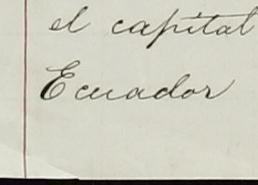 el capital
Ecuador